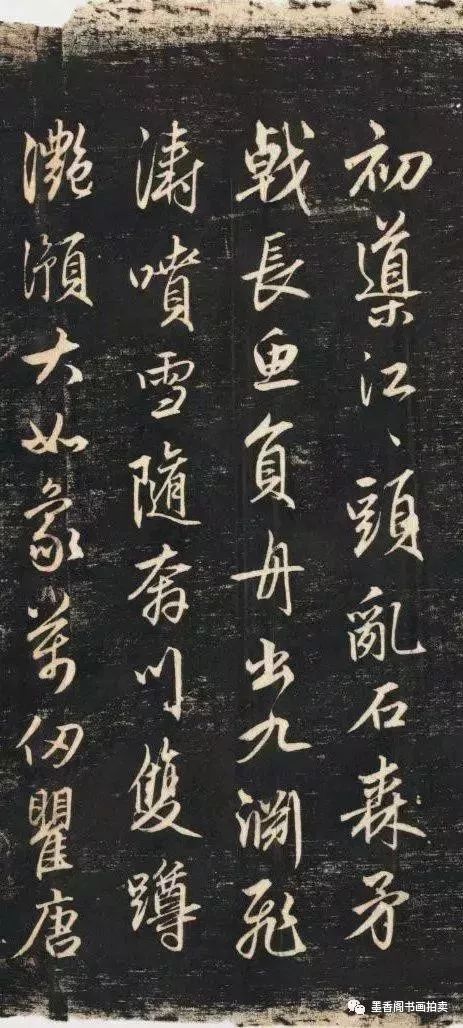 初導江、頭亂石森矛
戟長魚負舟出九淵飛
濤噴雪隨奔川雙蹲
灧澦大如象萬仞瞿唐
墨香阁书画拍卖